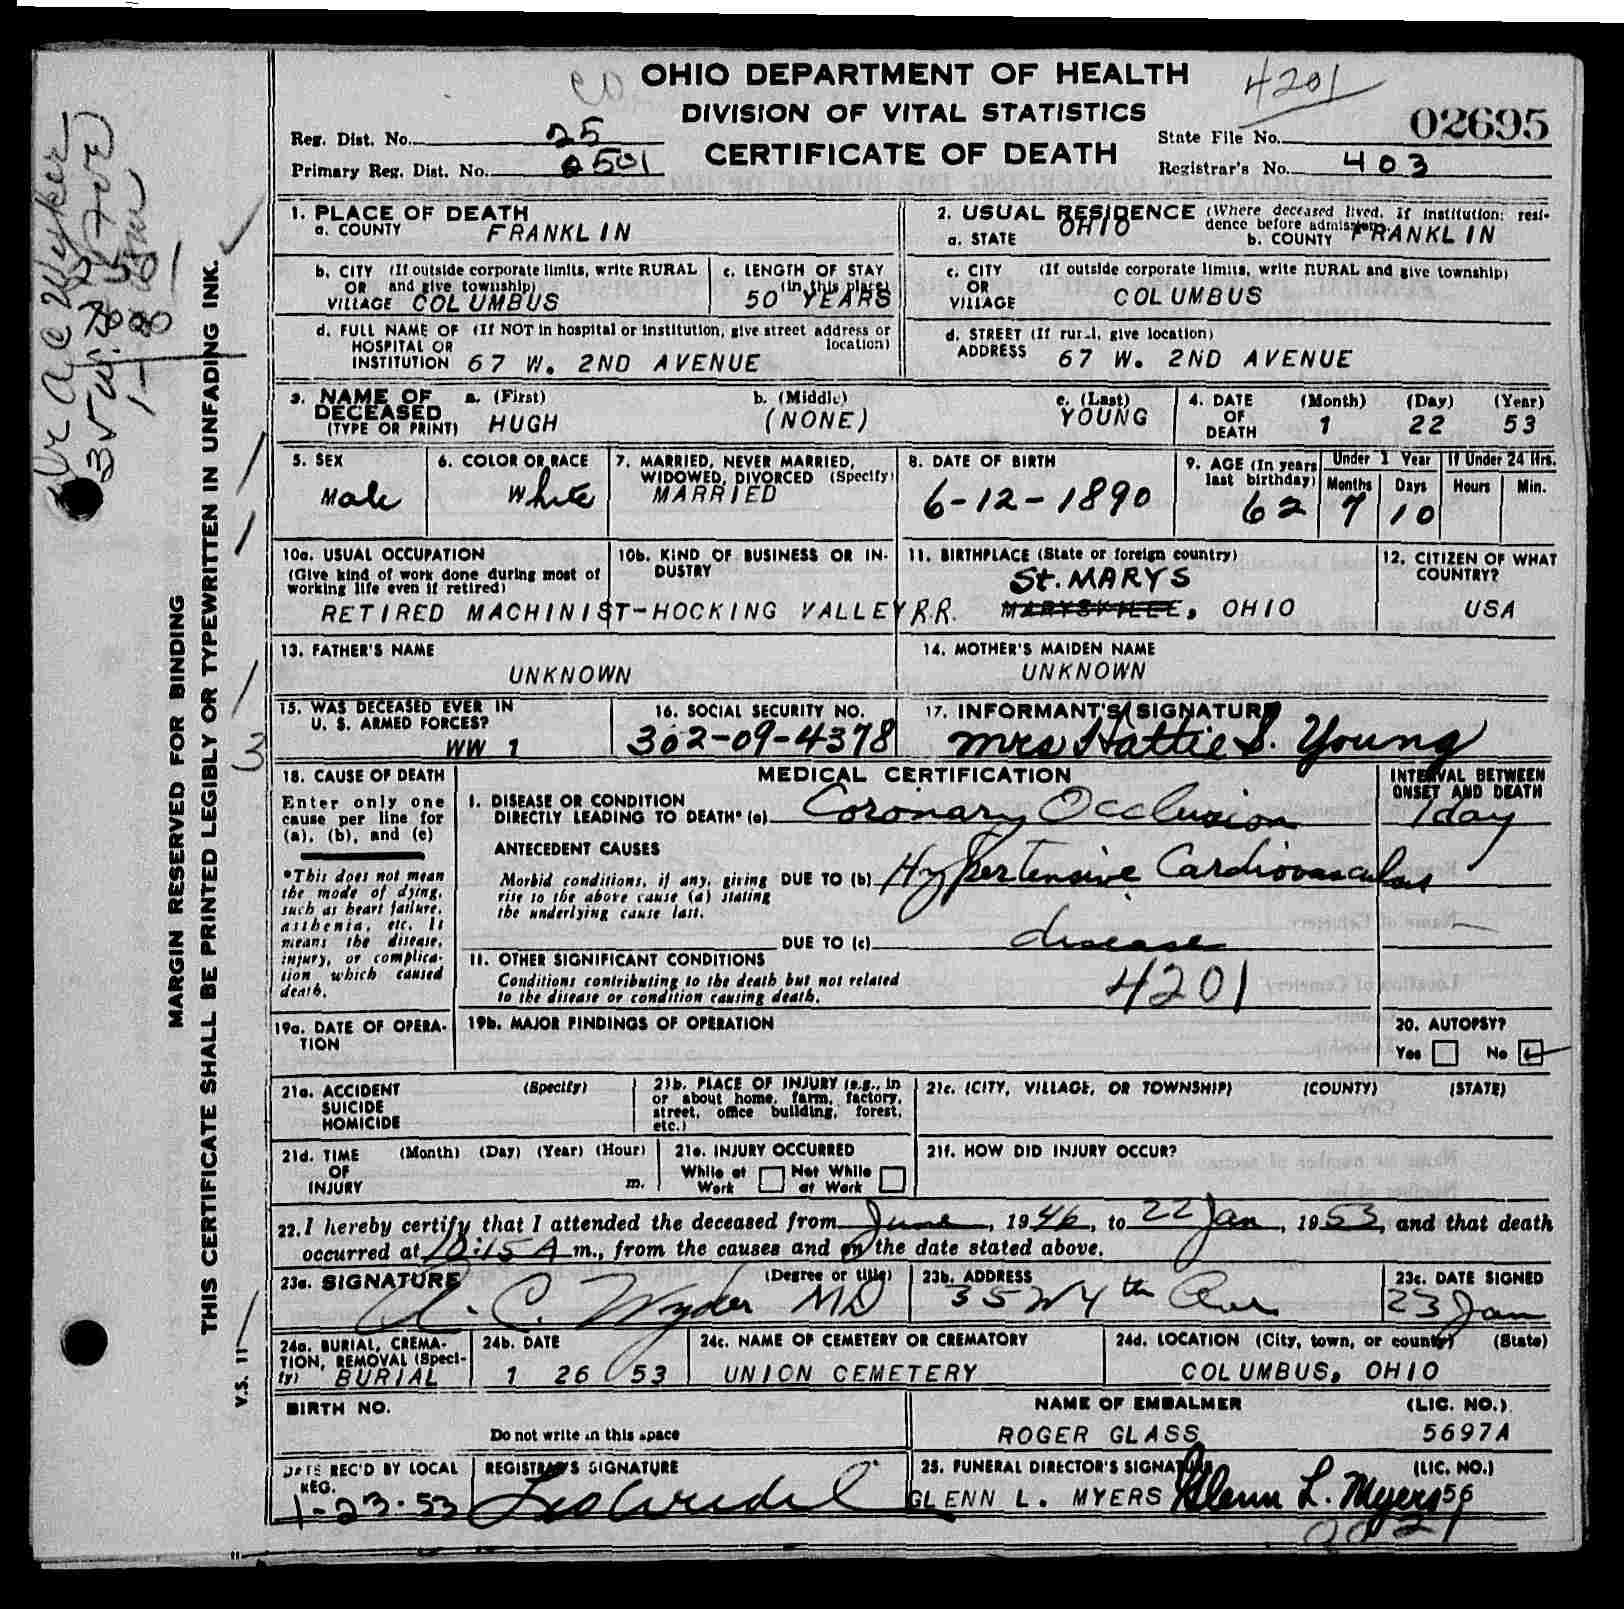 OHIO DEPARTMENT OF HEALTH
DIVISION OF VITAL STATISTICS
CERTIFICATE OF DEATH
4201
02695
Reg. Dist. No. 25
Primary Reg. Dist. No. 2501
State File No.
Registrar's No. 403
MARGIN RESERVED FOR BINDING
THIS CERTIFICATE SHALL BE PRINTED LEGIBLY OR TYPEWRITTEN IN UNFADING INK.
V.S. 11
3
1. PLACE OF DEATH
a. COUNTY FRANKLIN
b. CITY (If outside corporate limits, write RURAL
OR and give township)
VILLAGE COLUMBUS
c. LENGTH OF STAY
(in this place)
50 YEARS
d. FULL NAME OF (If NOT in hospital or institution, give street address or
HOSPITAL OR location)
INSTITUTION 67 W. 2ND AVENUE
2. USUAL RESIDENCE (Where deceased lived. If institution: resi-
dence before admission).
a. STATE OHIO b. COUNTY FRANKLIN
c. CITY (If outside corporate limits, write RURAL and give township)
OR
VILLAGE COLUMBUS
d. STREET (If rural, give location)
ADDRESS 67 W. 2ND AVENUE
3. NAME OF DECEASED (TYPE OR PRINT)
a. (First) b. (Middle) c. (Last)
HUGH (NONE) YOUNG
4. DATE OF DEATH (Month) (Day) (Year)
1 22 53
5. SEX
Male
6. COLOR OR RACE
White
7. MARRIED, NEVER MARRIED,
WIDOWED, DIVORCED (Specify)
MARRIED
8. DATE OF BIRTH
6-12-1890
9. AGE (In years
last birthday)
62
Under 1 Year
Months Days
7 10
If Under 24 Hrs.
Hours Min.
10a. USUAL OCCUPATION
(Give kind of work done during most of
working life even if retired)
10b. KIND OF BUSINESS OR IN-
DUSTRY
RETIRED MACHINIST-HOCKING VALLEY R.R.
11. BIRTHPLACE (State or foreign country)
St. MARYS
, OHIO
12. CITIZEN OF WHAT
COUNTRY?
USA
13. FATHER'S NAME
UNKNOWN
14. MOTHER'S MAIDEN NAME
UNKNOWN
15. WAS DECEASED EVER IN
U. S. ARMED FORCES?
WW 1
16. SOCIAL SECURITY NO.
302-09-4378
17. INFORMANT'S SIGNATURE
Mrs Hattie S. Young
18. CAUSE OF DEATH
Enter only one
cause per line for
(a), (b), and (c)
*This does not mean
the mode of dying,
such as heart failure,
asthenia, etc. It
means the disease,
injury, or complica-
tion which caused
death.
MEDICAL CERTIFICATION
INTERVAL BETWEEN
ONSET AND DEATH
I. DISEASE OR CONDITION
DIRECTLY LEADING TO DEATH* (a) Coronary Occlusion 1 day
ANTECEDENT CAUSES
Morbid conditions, if any, giving DUE TO (b) Hypertensive Cardiovascular
rise to the above cause (a) stating
the underlying cause last.
DUE TO (c) disease
II. OTHER SIGNIFICANT CONDITIONS
Conditions contributing to the death but not related
to the disease or condition causing death.
4201
19a. DATE OF OPERA-
TION
19b. MAJOR FINDINGS OF OPERATION
20. AUTOPSY?
Yes No
21a. ACCIDENT (Specify)
SUICIDE
HOMICIDE
21b. PLACE OF INJURY (e.g., in
or about home, farm, factory,
street, office building, forest,
etc.)
21c. (CITY, VILLAGE, OR TOWNSHIP) (COUNTY) (STATE)
21d. TIME (Month) (Day) (Year) (Hour)
OF
INJURY m.
21e. INJURY OCCURRED
While at Not While
Work at Work
21f. HOW DID INJURY OCCUR?
22. I hereby certify that I attended the deceased from June, 1946, to 22 Jan, 1953, and that death
occurred at 10:15 A m., from the causes and on the date stated above.
23a. SIGNATURE (Degree or title)
A. C. Wyker MD
23b. ADDRESS
35 W 4th Ave
23c. DATE SIGNED
23 Jan
24a. BURIAL, CREMA-
TION, REMOVAL (Speci-
fy) BURIAL
24b. DATE
1 26 53
24c. NAME OF CEMETERY OR CREMATORY
UNION CEMETERY
24d. LOCATION (City, town, or county) (State)
COLUMBUS, OHIO
BIRTH NO.
Do not write in this space
NAME OF EMBALMER (LIC. NO.)
ROGER GLASS 5697A
DATE REC'D BY LOCAL
REG.
1-23-53
REGISTRAR'S SIGNATURE
25. FUNERAL DIRECTOR'S SIGNATURE (LIC. NO.)
GLENN L. MYERS Glenn L. Myers 56